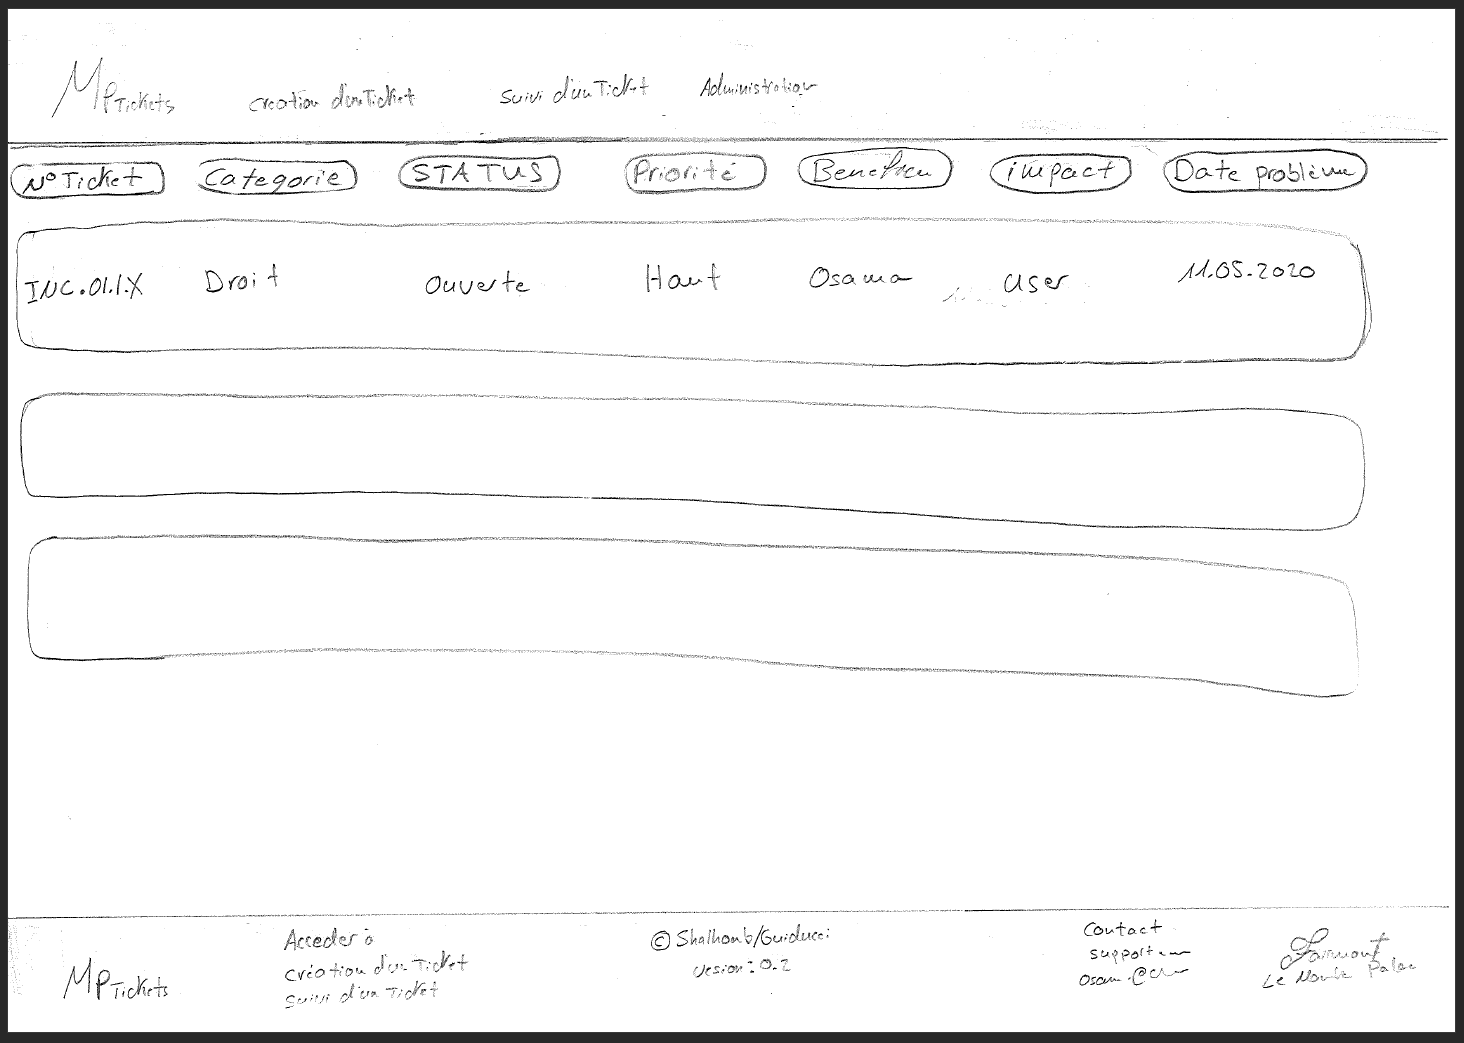 MPTickets création d'un Ticket Suivi d'un Ticket Administration
N° Ticket Categorie STATUS Priorité impact Date problème
INC.01.1.X Droit Ouverte Haut Osama user 11.05.2020
MPTickets
Acceder à
création d'un Ticket
Suivi d'un Ticket
© Shalhoub/Guiducci
Version: 0.2
Contact
support
Fairmont
Le Palac